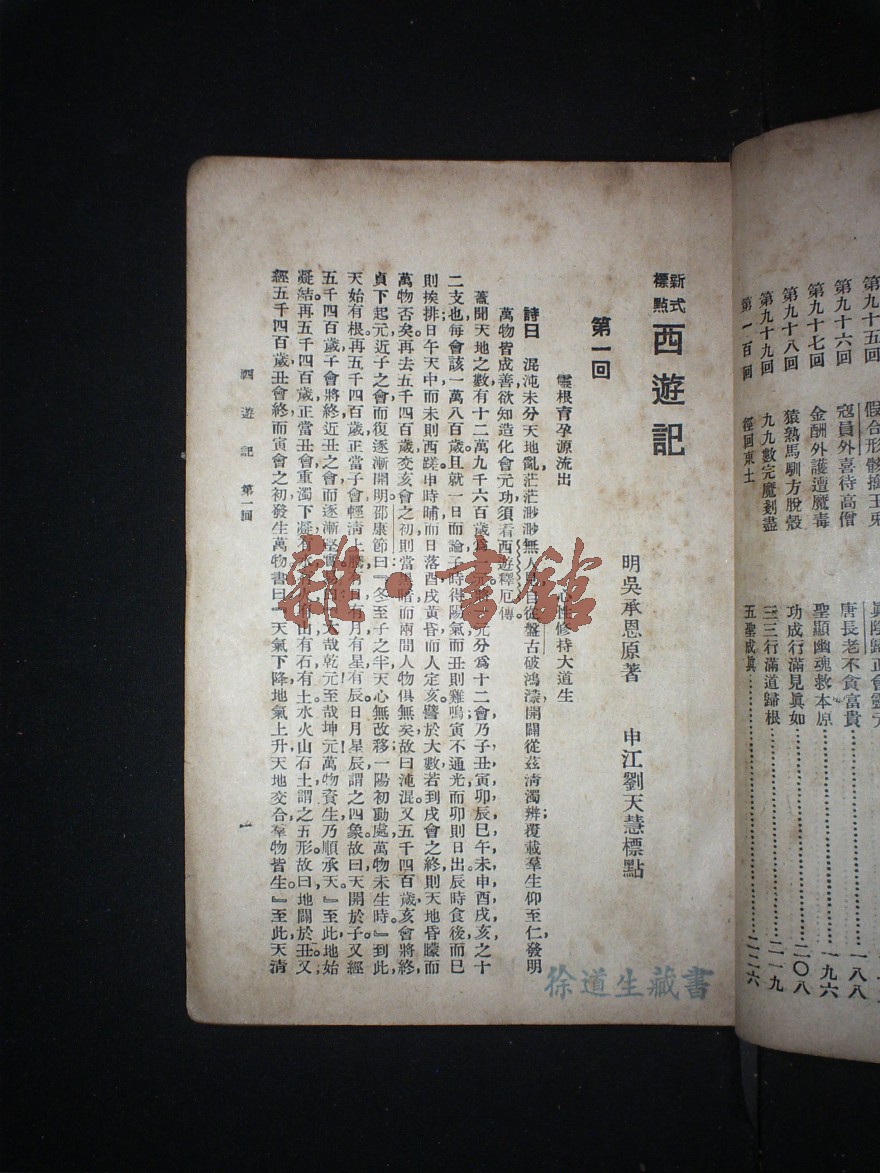 第九十五回 假合形骸擒玉兔
第九十六回 寇員外喜待高僧 唐長老不貪富貴
第九十七回 金酬外護遭魔毒 聖顯幽魂救本原
第九十八回 猿熟馬馴方脫殼 功成行滿見真如
第九十九回 九九數完魔剗盡 三三行滿道歸根
第一百回 徑回東土 五聖成眞
一八八
一九六
二〇八
二一九
二二六
新式標點 西遊記
明吳承恩原著 申江劉天慧標點
第一回
靈根育孕源流出 心性修持大道生
詩曰 混沌未分天地亂,茫茫渺渺無人見。自從盤古破鴻濛,開闢從茲淸濁辨;覆載羣生仰至仁,發明
萬物皆成善;欲知造化會元功,須看西遊釋厄傳。
蓋聞天地之數,有十二萬九千六百歲爲一元。將一元分爲十二會,乃子丑寅卯辰巳午未申酉戌亥之十
二支也。每會該一萬八百歲。且就一日而論:子時得陽氣,而丑則雞鳴;寅不通光,而卯則日出;辰時食後,而巳
則挨排;日午天中,而未則西蹉;申時晡,而日落酉;戌黃昏,而人定亥。譬於大數,若到戌會之終,則天地昏曚而
萬物否矣。再去五千四百歲,交亥會之初,則當黑暗,而兩間人物俱無矣,故曰混沌。又五千四百歲,亥會將終,
貞下起元,近子之會,而復逐漸開明。邵康節曰:『冬至子之半,天心無改移。一陽初動處,萬物未生時。』到此
天始有根。再五千四百歲,正當子會,輕淸上騰,有日有月有星有辰。日月星辰,謂之四象。故曰天開於子。又經
五千四百歲,子會將終,近丑之會,而逐漸堅實。易曰:『大哉乾元!至哉坤元!萬物資生,乃順承天。』至此,地始
凝結。再五千四百歲,正當丑會,重濁下凝,有水有火有山有石有土。水火山石土,謂之五形。故曰地闢於丑。又
經五千四百歲,丑會終而寅會之初,發生萬物。書曰:『天氣下降,地氣上升;天地交合,羣物皆生。』至此,天淸
西遊記 第一回
一
雜·書館
徐道生藏書